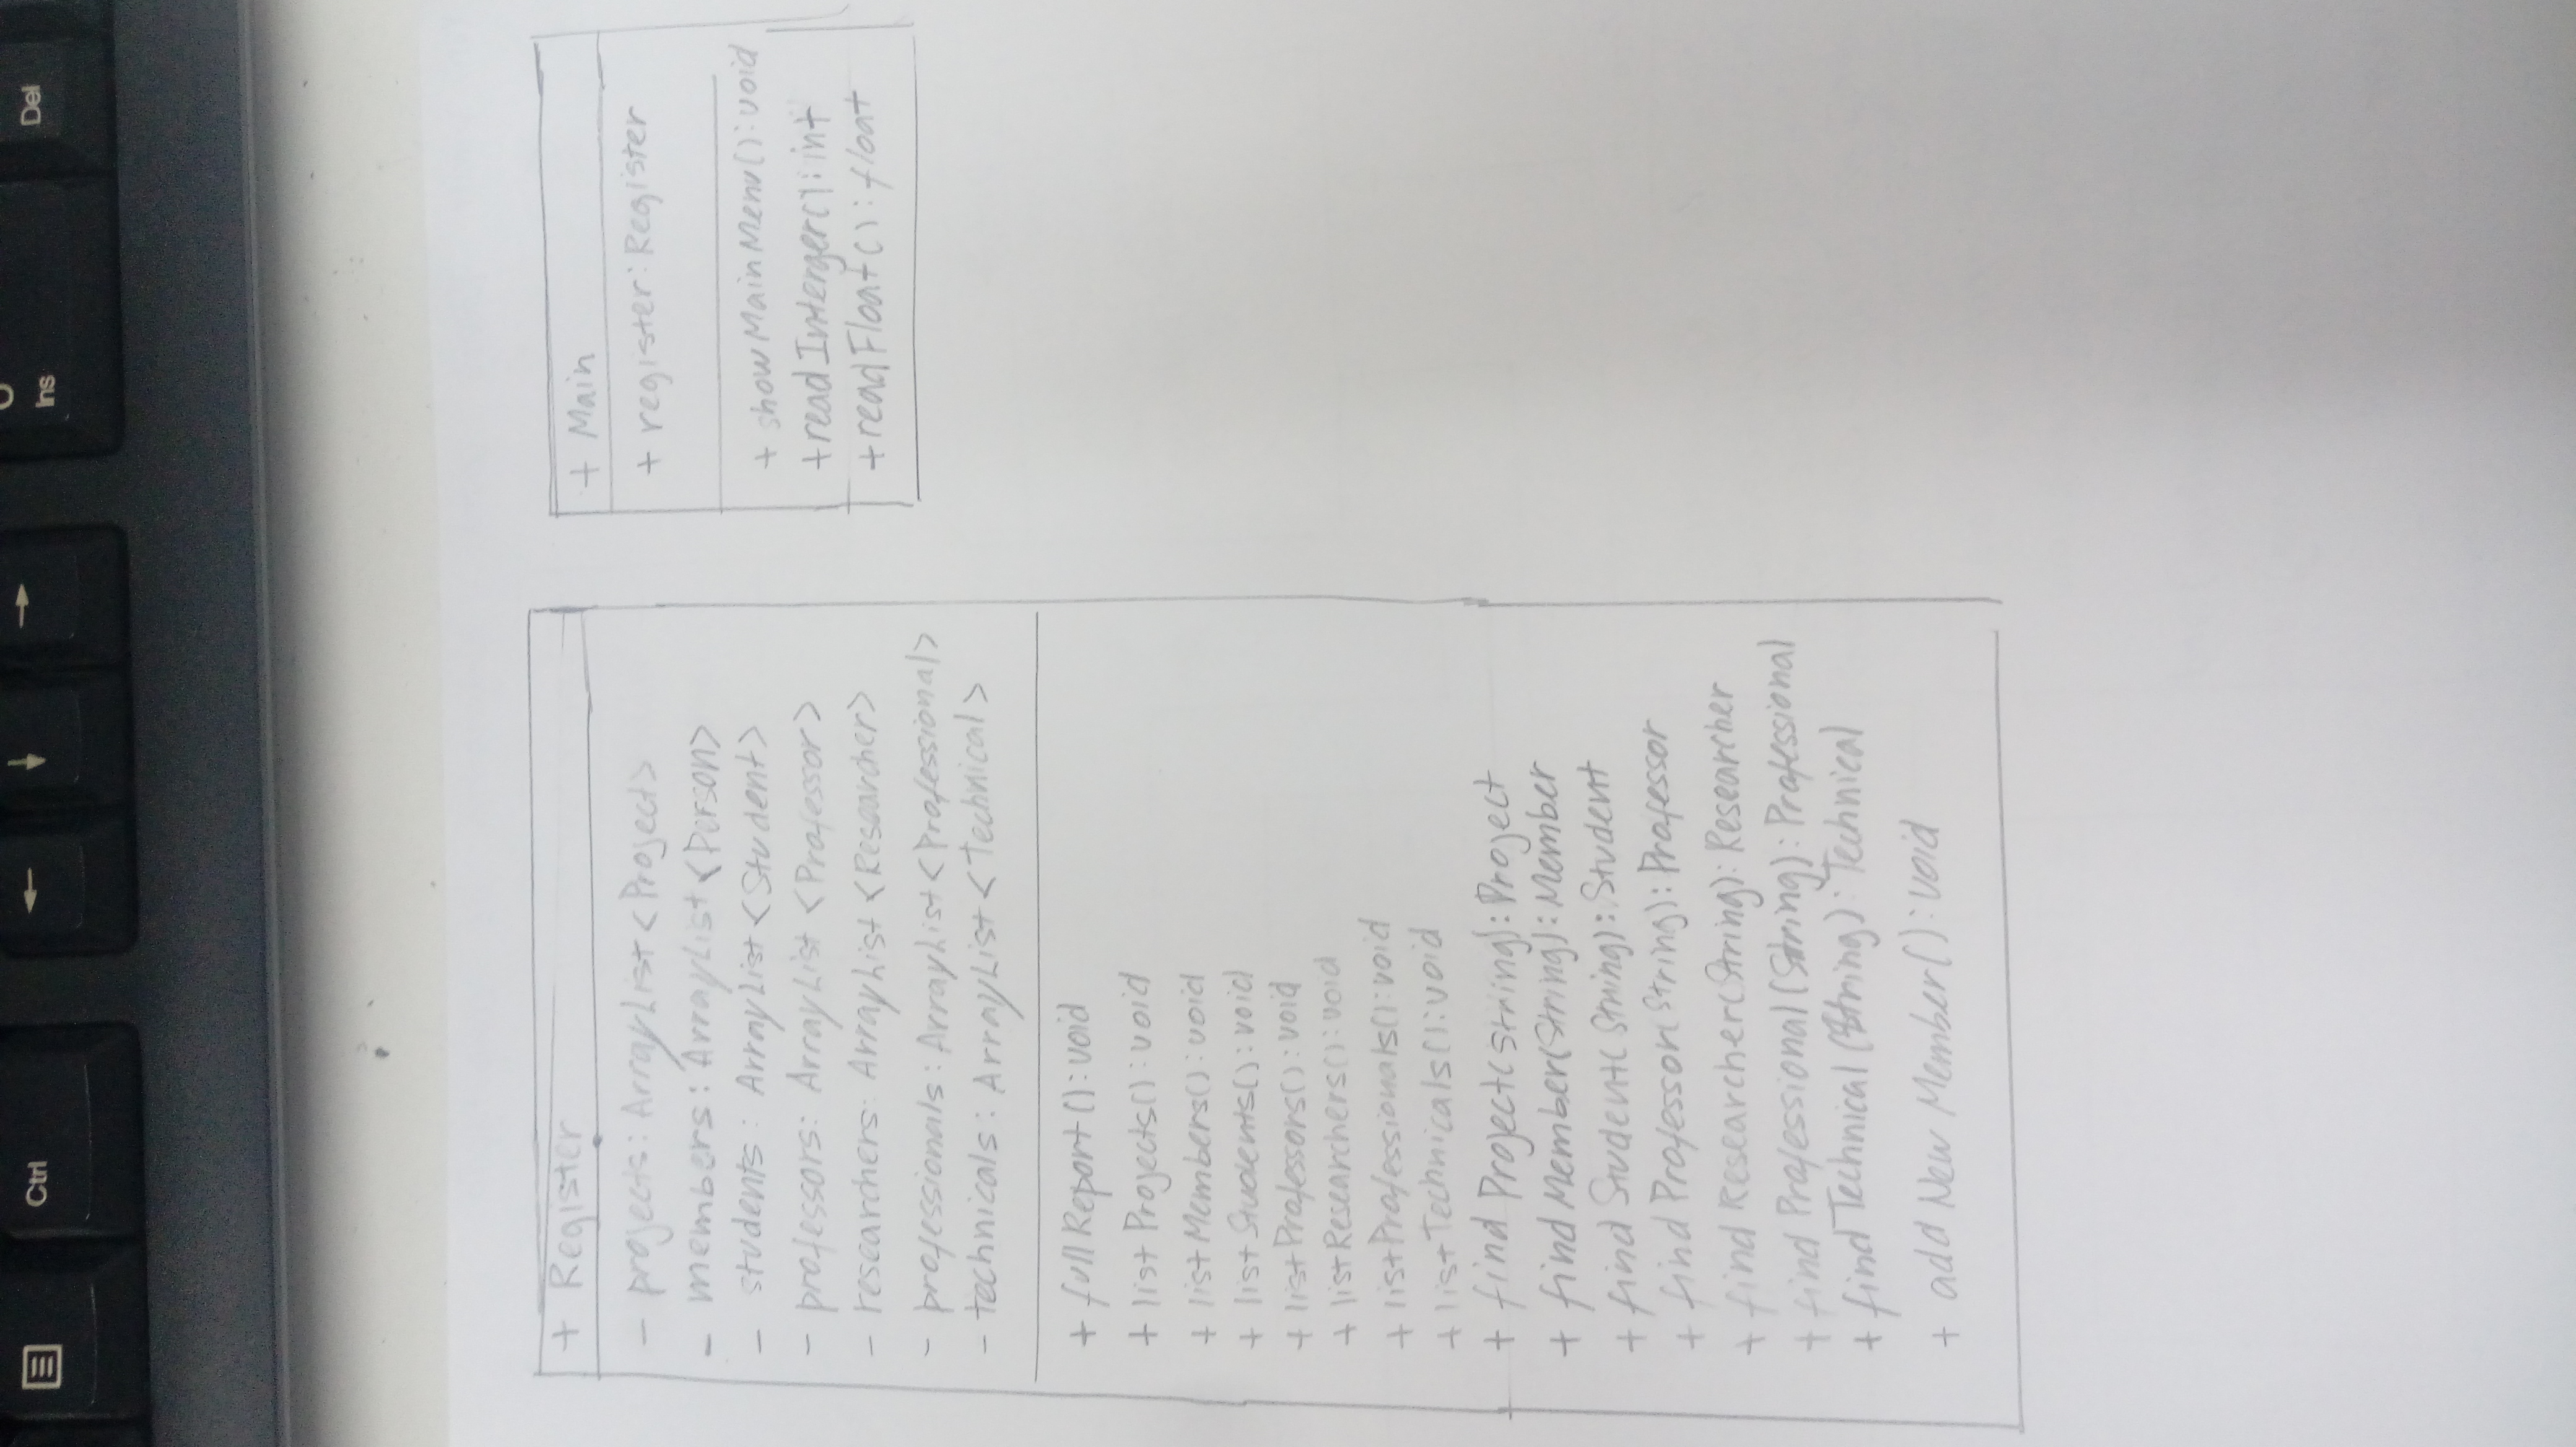 Ctrl
Ins
Del
+ Register
- projects: ArrayList <Project>
- members: ArrayList <Person>
- students: ArrayList <Student>
- professors: ArrayList <Professor>
- researchers: ArrayList <Researcher>
- professionals: ArrayList <Professional>
- technicals: ArrayList <Technical>
+ fullReport(): void
+ listProjects(): void
+ listMembers(): void
+ listStudents(): void
+ listProfessors(): void
+ listResearchers(): void
+ listProfessionals(): void
+ listTechnicals(): void
+ find Project(String): Project
+ find Member(String): Member
+ find Student(String): Student
+ find Professor(String): Professor
+ find Researcher(String): Researcher
+ find Professional(String): Professional
+ find Technical(String): Technical
+ add New Member(): void
+ Main
+ register: Register
+ showMainMenu(): void
+ readInterger(): int
+ readFloat(): float